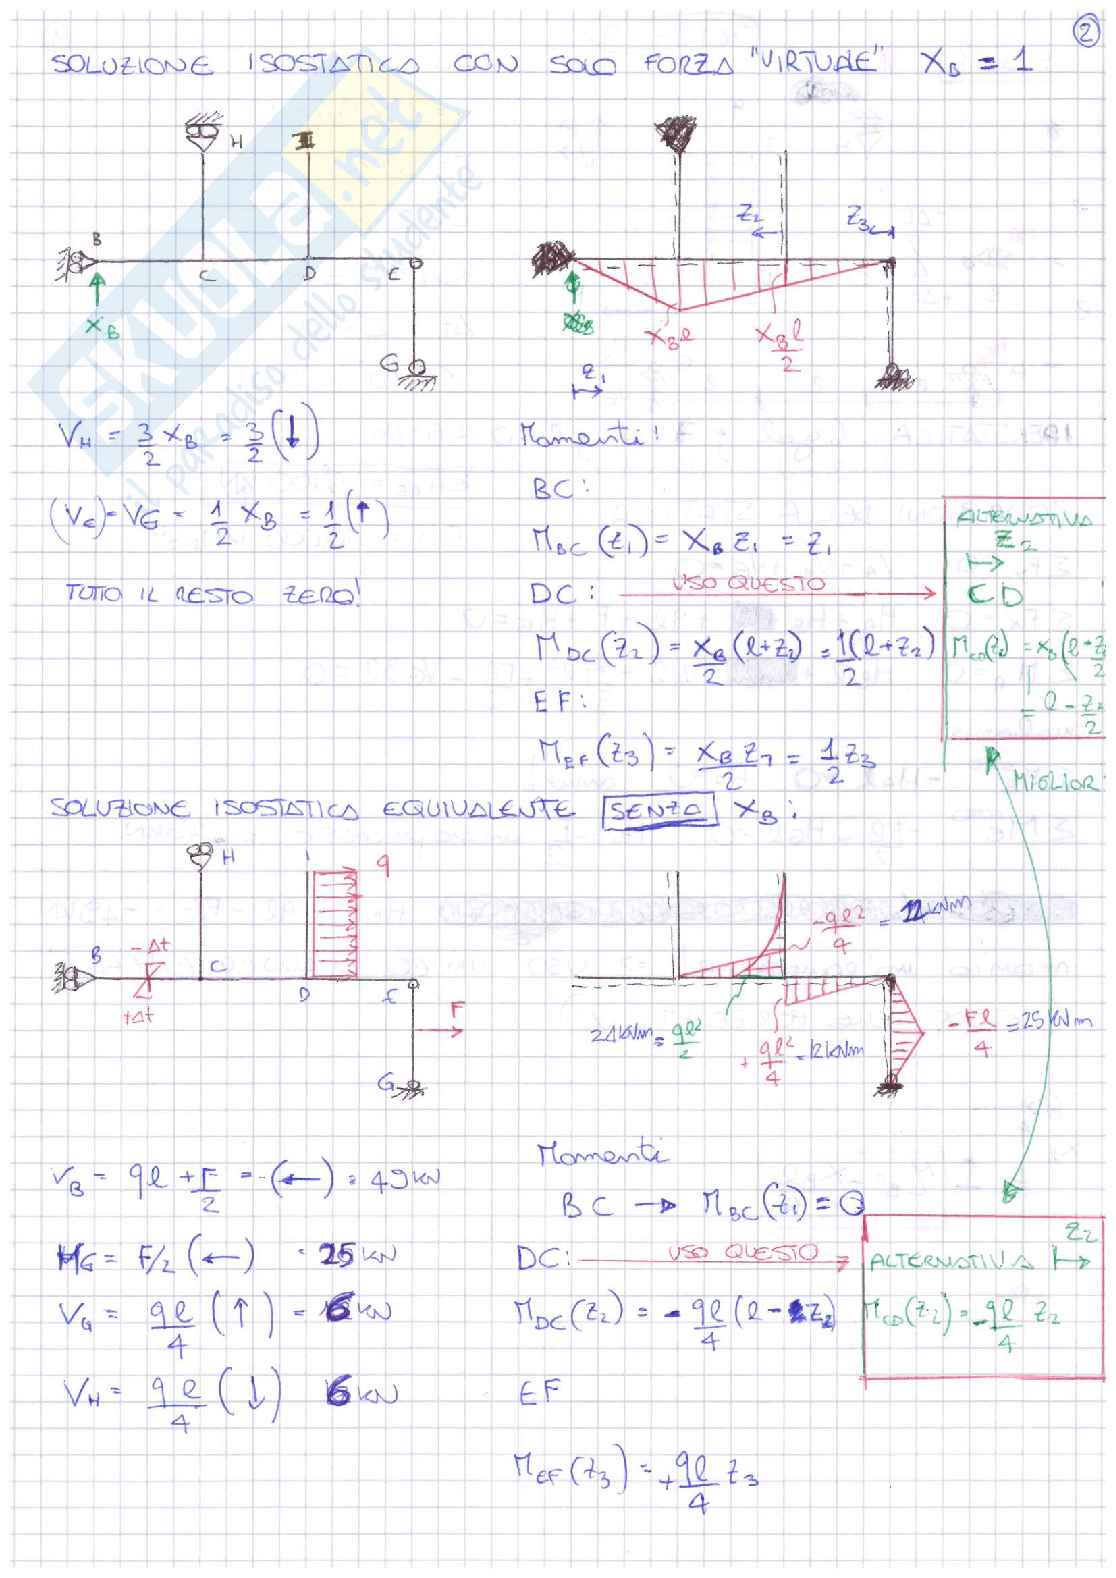 2
SOLUZIONE ISOSTATICA CON SOLO FORZA "VIRTUALE" X_B = 1
H
B
C
D
E
X_B
G
Z_2
Z_3
X_B l
X_B l/2
z_1
V_H = 3/2 X_B = 3/2 (↓)
(V_E) = V_G = 1/2 X_B = 1/2 (↑)
TUTTO IL RESTO ZERO!
Momenti!
BC:
M_BC(z_1) = X_B z_1 = z_1
DC: USO QUESTO
M_DC(z_2) = X_B/2 (l+z_2) = 1/2 (l+z_2)
EF:
M_EF(z_3) = X_B z_3/2 = 1/2 z_3
ALTERNATIVA
Z_2
CD
M_CD(z_2) = X_B (l - z_2/2
= l - z_2/2
MIGLIOR
SOLUZIONE ISOSTATICA EQUIVALENTE SENZA X_B:
H
q
B
-Δt
+Δt
C
D
E
F
G
-ql²/4 = 12 kNm
24 kNm = ql²/2
+ql²/4 = 12 kNm
-Fl/4 = 25 kNm
V_B = ql + F/2 = -(←) = 49 kN
H_G = F/2 (←) = 25 kN
V_G = ql/4 (↑) = 6 kN
V_H = ql/4 (↓) 6 kN
Momenti
BC → M_BC(z_1) = 0
DC: USO QUESTO
M_DC(z_2) = -ql/4 (l - z_2)
ALTERNATIVA
Z_2
M_CD(z_2) = -ql/4 z_2
EF
M_EF(z_3) = +ql/4 z_3
SKUOLA.net
il paradiso dello studente